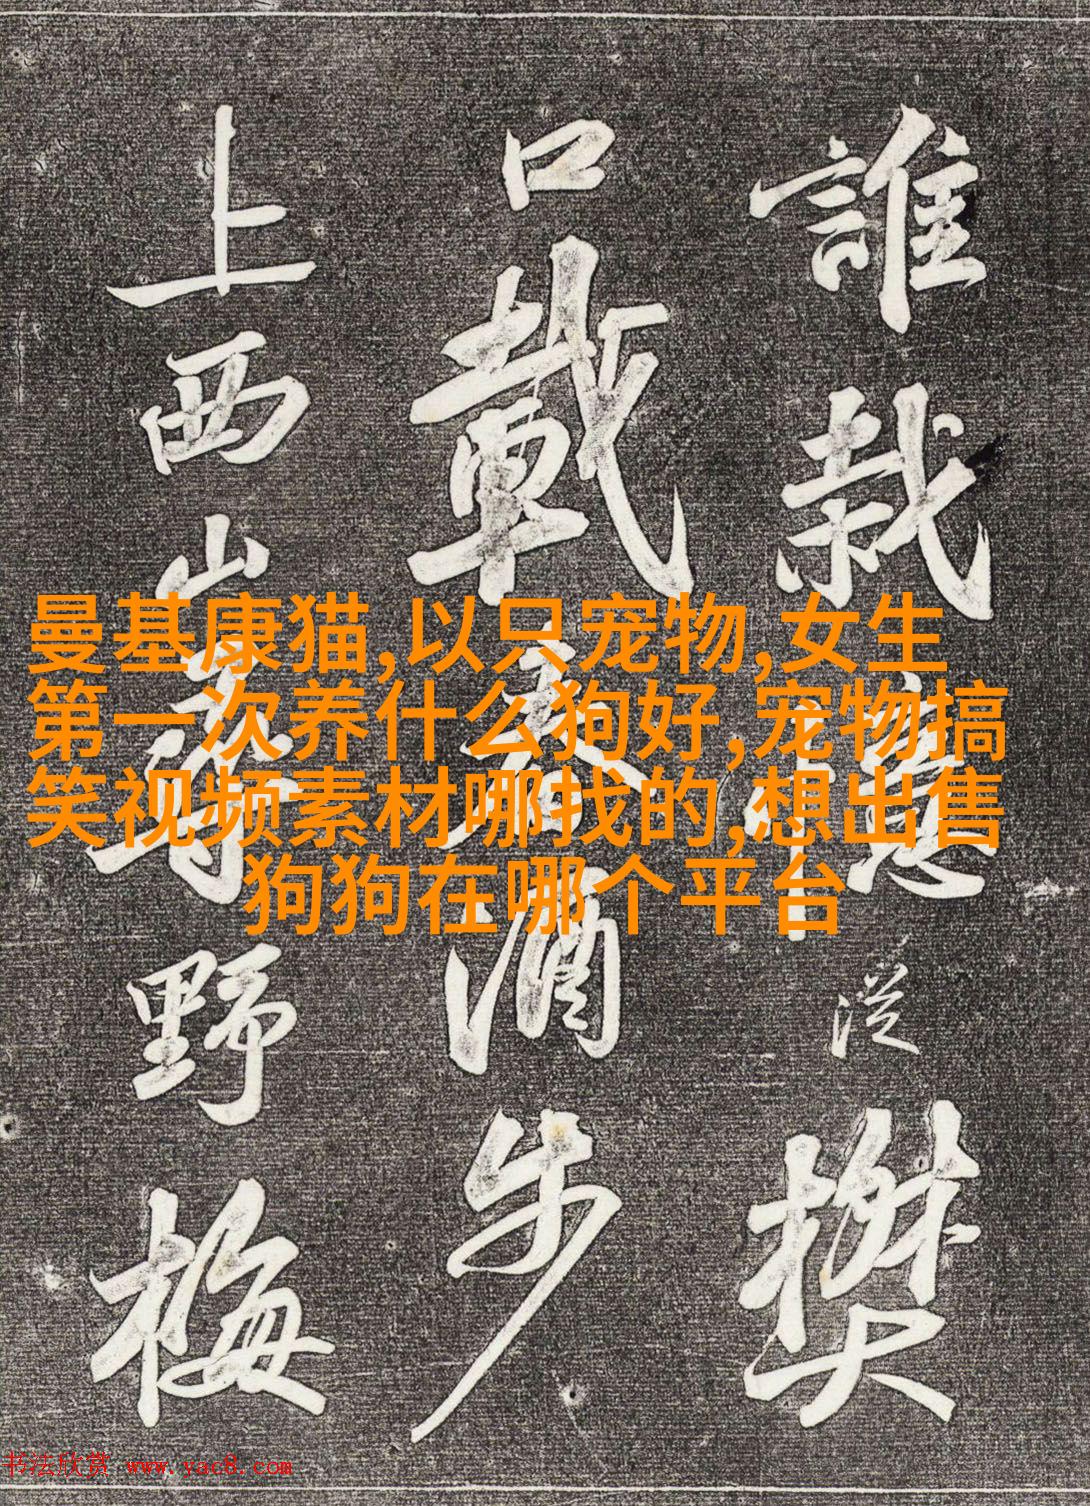 誰栽憶從樊
口載春酒步
上西山尋野梅
曼基康猫,以只宠物,女生
第一次养什么狗好,宠物搞
笑视频素材哪找的,想出售
狗狗在哪个平台
书法欣赏 www.yac8.com